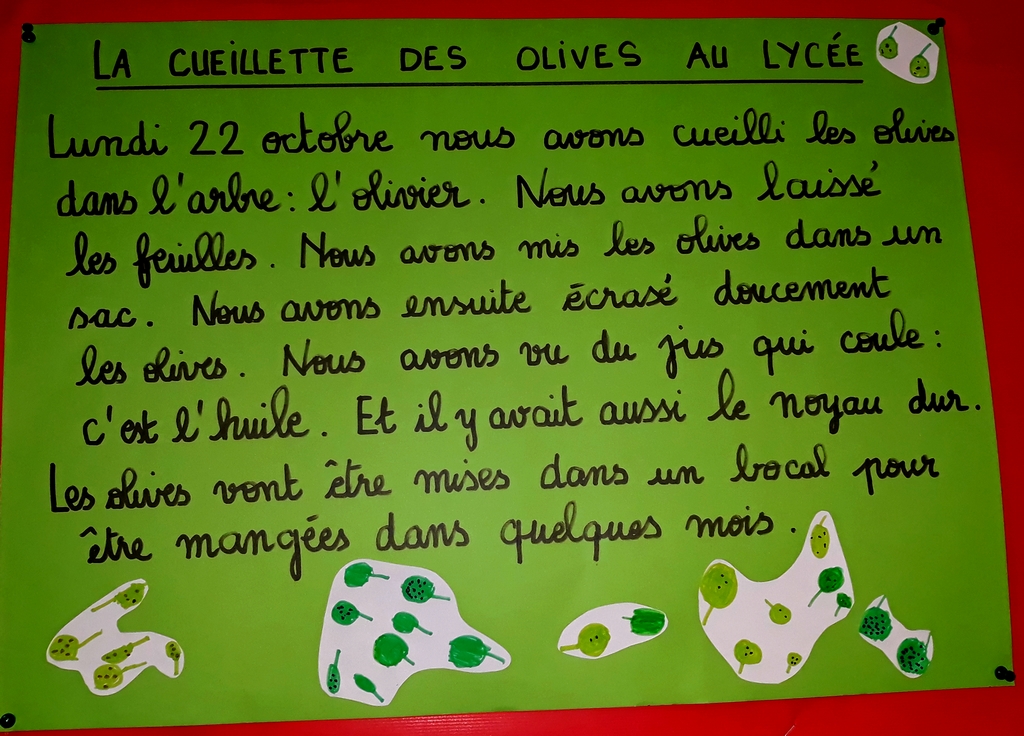 LA CUEILLETTE DES OLIVES AU LYCÉE
Lundi 22 octobre nous avons cueilli les olives
dans l'arbre : l'olivier. Nous avons laissé
les feuilles. Nous avons mis les olives dans un
sac. Nous avons ensuite écrasé doucement
les olives. Nous avons vu du jus qui coule :
c'est l'huile. Et il y avait aussi le noyau dur.
Les olives vont être mises dans un bocal pour
être mangées dans quelques mois.